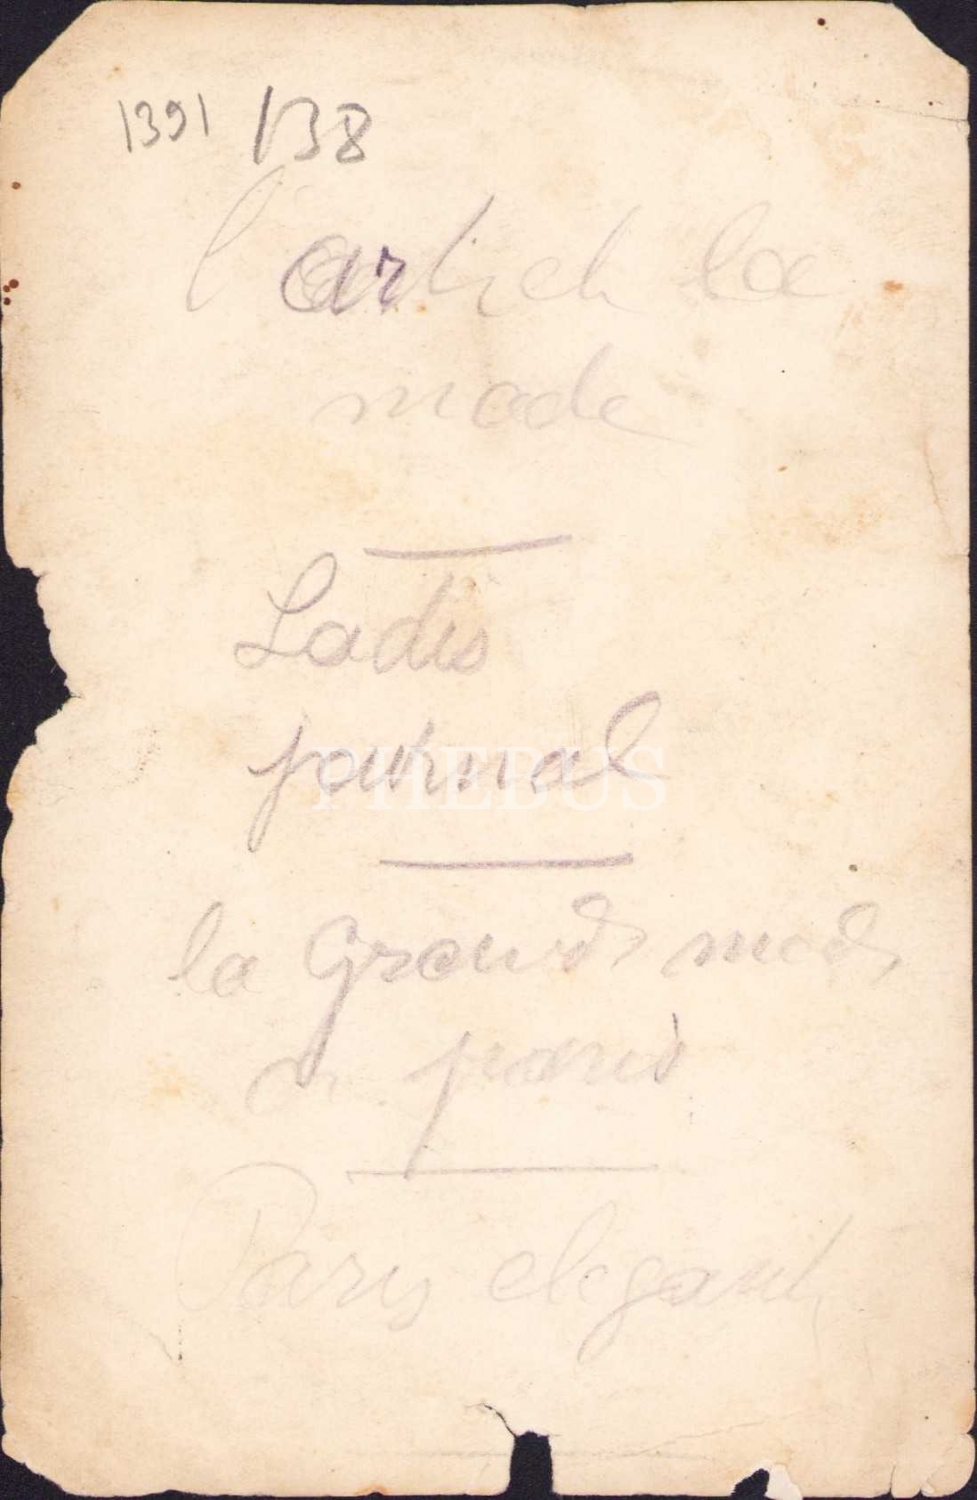 1391 138
l'artich la
mode
Ladis
journal
PHEBUS
la Grands mode
paris
Paris elegant